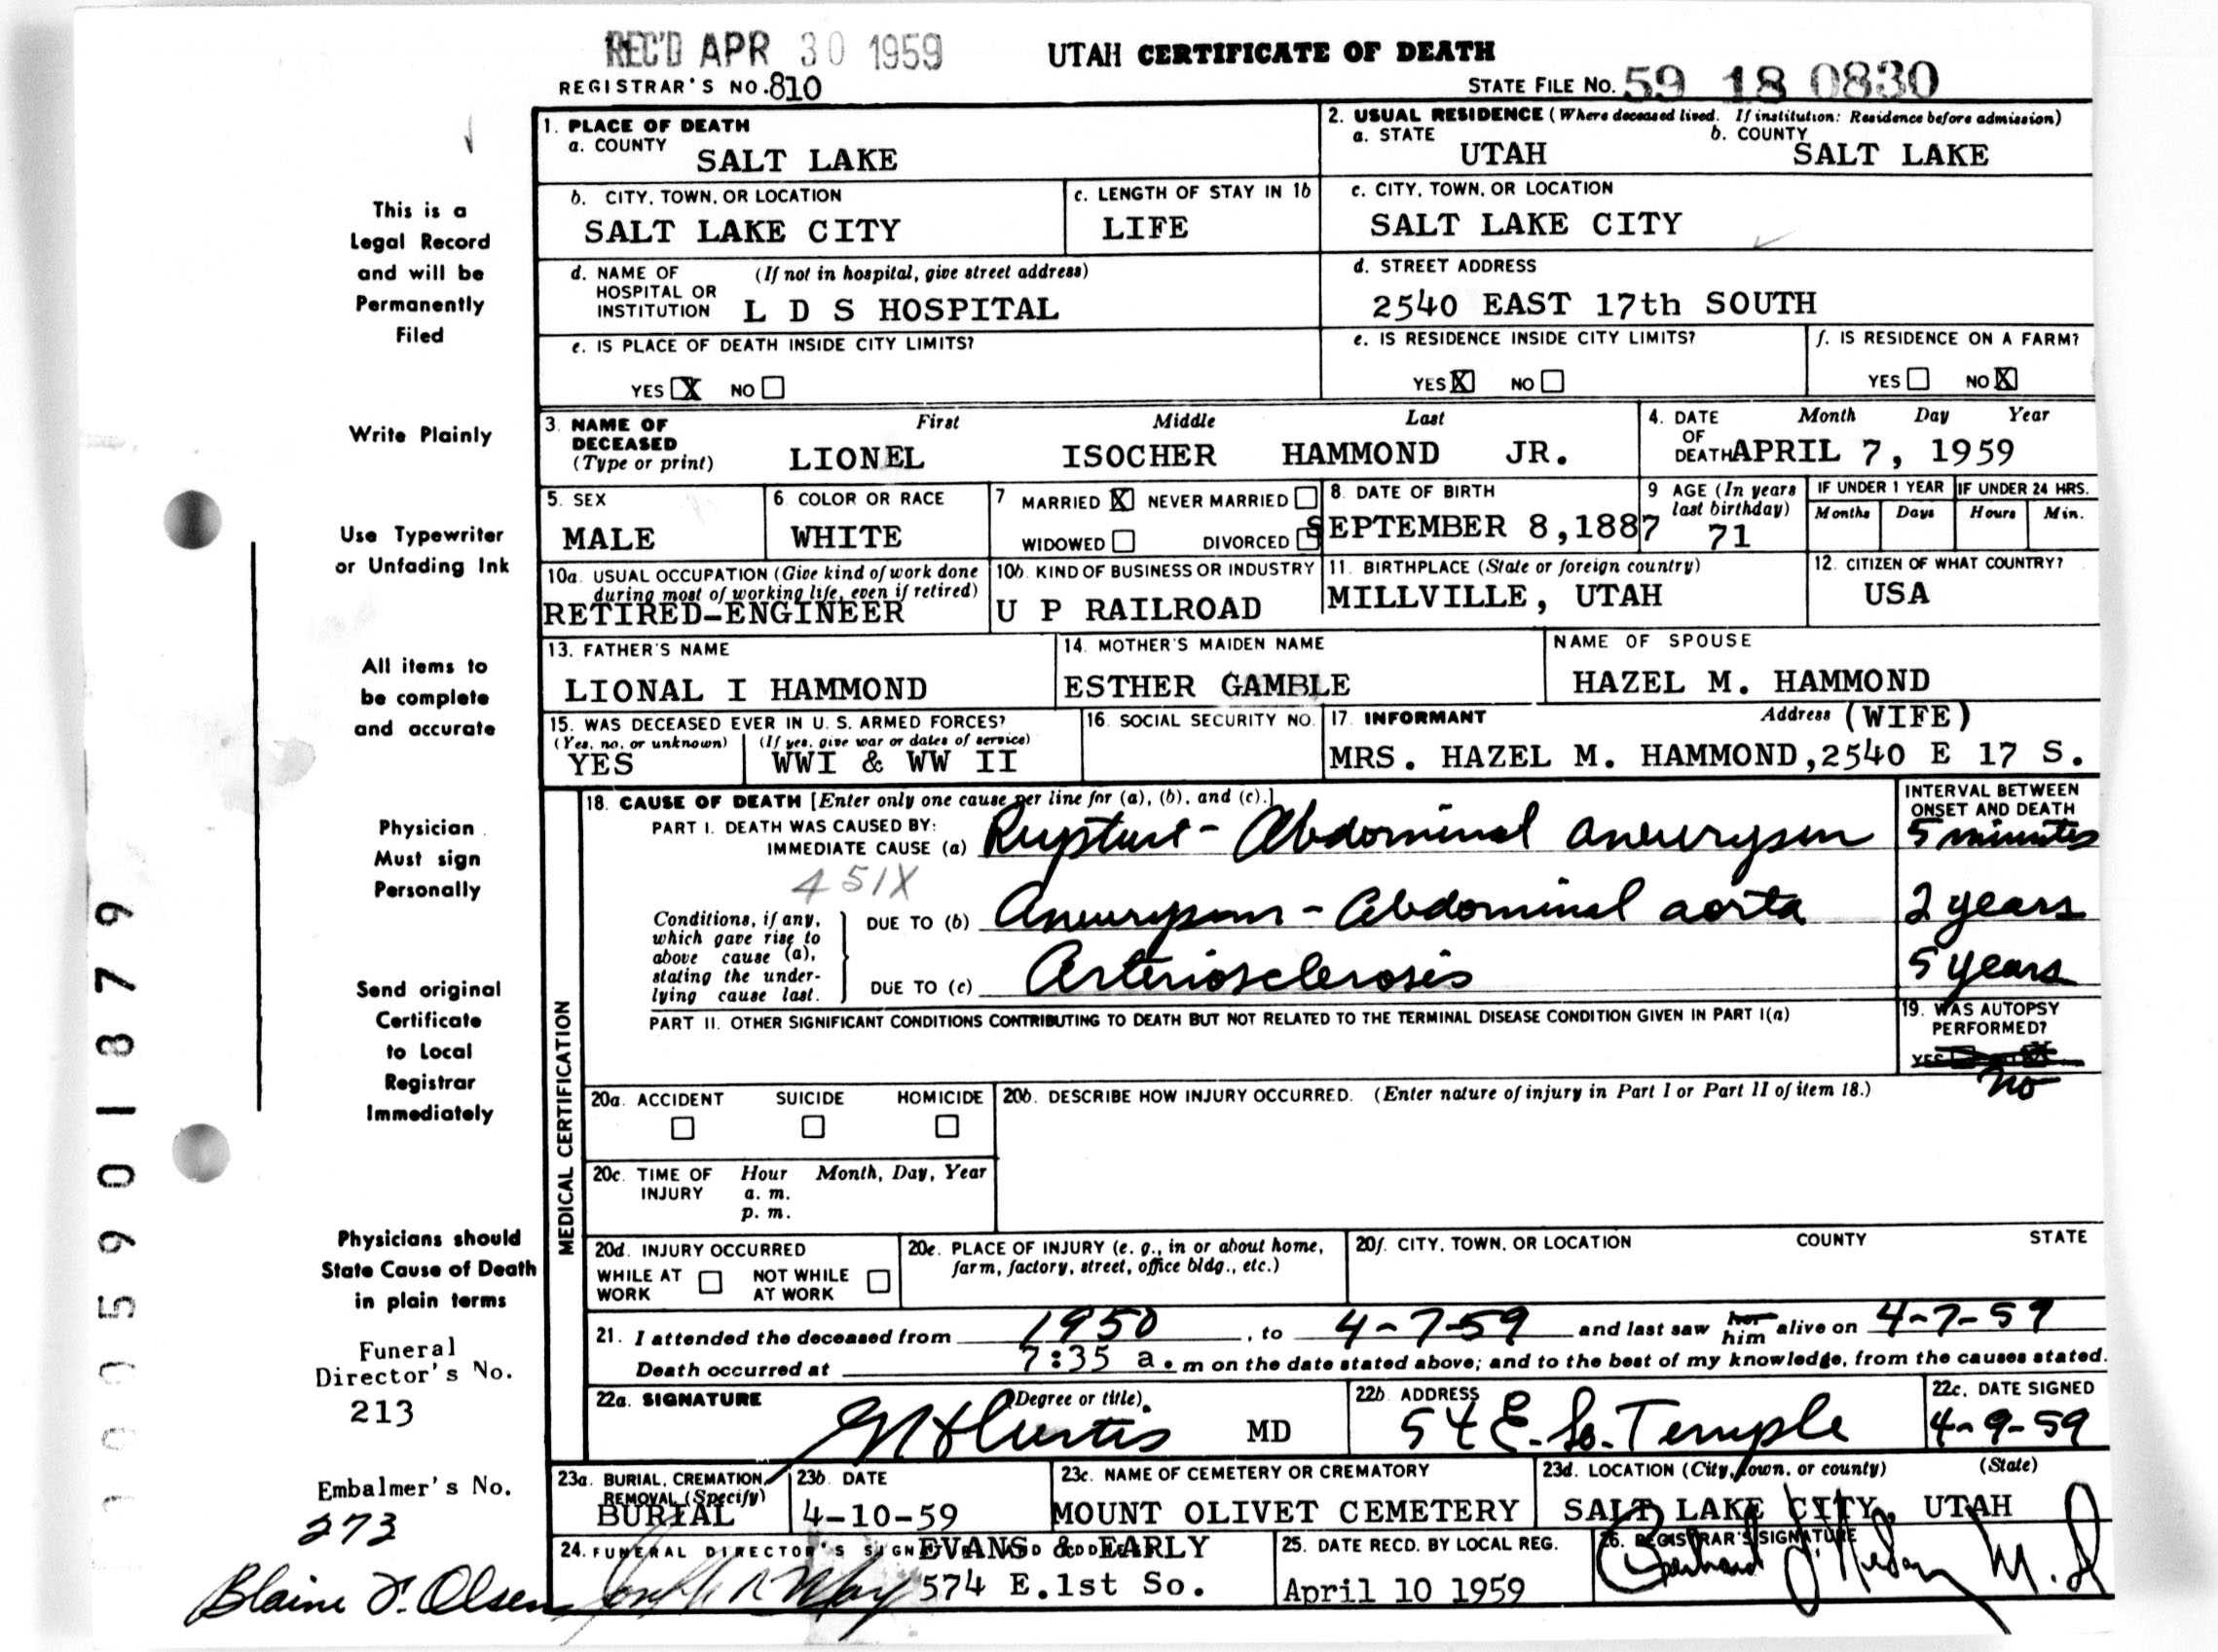 REC'D APR 30 1959
UTAH CERTIFICATE OF DEATH
REGISTRAR'S NO. 810
STATE FILE NO. 59 18 0830
1. PLACE OF DEATH
a. COUNTY SALT LAKE
2. USUAL RESIDENCE (Where deceased lived. If institution: Residence before admission)
a. STATE UTAH b. COUNTY SALT LAKE
b. CITY, TOWN, OR LOCATION
SALT LAKE CITY
c. LENGTH OF STAY IN 1b
LIFE
c. CITY, TOWN, OR LOCATION
SALT LAKE CITY
d. NAME OF (If not in hospital, give street address)
HOSPITAL OR
INSTITUTION L D S HOSPITAL
d. STREET ADDRESS
2540 EAST 17th SOUTH
e. IS PLACE OF DEATH INSIDE CITY LIMITS?
YES X NO
e. IS RESIDENCE INSIDE CITY LIMITS?
YES X NO
f. IS RESIDENCE ON A FARM?
YES NO X
3. NAME OF DECEASED (Type or print)
First Middle Last
LIONEL ISOCHER HAMMOND JR.
4. DATE OF DEATH Month Day Year
APRIL 7, 1959
5. SEX
MALE
6. COLOR OR RACE
WHITE
7 MARRIED X NEVER MARRIED
WIDOWED DIVORCED
8. DATE OF BIRTH
SEPTEMBER 8,1887
9 AGE (In years last birthday)
71
IF UNDER 1 YEAR
Months Days
IF UNDER 24 HRS.
Hours Min.
10a. USUAL OCCUPATION (Give kind of work done
during most of working life, even if retired)
RETIRED-ENGINEER
10b. KIND OF BUSINESS OR INDUSTRY
U P RAILROAD
11. BIRTHPLACE (State or foreign country)
MILLVILLE, UTAH
12. CITIZEN OF WHAT COUNTRY?
USA
13. FATHER'S NAME
LIONAL I HAMMOND
14. MOTHER'S MAIDEN NAME
ESTHER GAMBLE
NAME OF SPOUSE
HAZEL M. HAMMOND
15. WAS DECEASED EVER IN U. S. ARMED FORCES?
(Yes, no, or unknown) (If yes, give war or dates of service)
YES WWI & WW II
16. SOCIAL SECURITY NO.
17. INFORMANT Address (WIFE)
MRS. HAZEL M. HAMMOND,2540 E 17 S.
MEDICAL CERTIFICATION
18. CAUSE OF DEATH [Enter only one cause per line for (a), (b), and (c).]
PART I. DEATH WAS CAUSED BY:
IMMEDIATE CAUSE (a) Rupture - Abdominal aneurysm
451X
Conditions, if any,
which gave rise to
above cause (a),
stating the under-
lying cause last.
DUE TO (b) Aneurysm - Abdominal aorta
DUE TO (c) Arteriosclerosis
INTERVAL BETWEEN
ONSET AND DEATH
5 minutes
2 years
5 years
PART II. OTHER SIGNIFICANT CONDITIONS CONTRIBUTING TO DEATH BUT NOT RELATED TO THE TERMINAL DISEASE CONDITION GIVEN IN PART I(a)
19. WAS AUTOPSY
PERFORMED?
YES
No
20a. ACCIDENT SUICIDE HOMICIDE
20b. DESCRIBE HOW INJURY OCCURRED. (Enter nature of injury in Part I or Part II of item 18.)
20c. TIME OF INJURY Hour Month, Day, Year
a. m.
p. m.
20d. INJURY OCCURRED
WHILE AT WORK NOT WHILE AT WORK
20e. PLACE OF INJURY (e. g., in or about home,
farm, factory, street, office bldg., etc.)
20f. CITY, TOWN, OR LOCATION COUNTY STATE
21. I attended the deceased from 1950, to 4-7-59 and last saw her him alive on 4-7-59
Death occurred at 7:35 a. m on the date stated above; and to the best of my knowledge, from the causes stated.
22a. SIGNATURE (Degree or title)
Curtis MD
22b. ADDRESS
54 E. So. Temple
22c. DATE SIGNED
4-9-59
23a. BURIAL, CREMATION,
REMOVAL (Specify)
BURIAL
23b. DATE
4-10-59
23c. NAME OF CEMETERY OR CREMATORY
MOUNT OLIVET CEMETERY
23d. LOCATION (City, town, or county) (State)
SALT LAKE CITY, UTAH
24. FUNERAL DIRECTOR'S
EVANS & EARLY
574 E.1st So.
25. DATE RECD. BY LOCAL REG.
April 10 1959
26. REGISTRAR'S SIGNATURE
M.D
This is a
Legal Record
and will be
Permanently
Filed
Write Plainly
Use Typewriter
or Unfading Ink
All items to
be complete
and accurate
Physician
Must sign
Personally
Send original
Certificate
to Local
Registrar
Immediately
Physicians should
State Cause of Death
in plain terms
Funeral
Director's No.
213
Embalmer's No.
273
Blaine F. Olsen
005901879